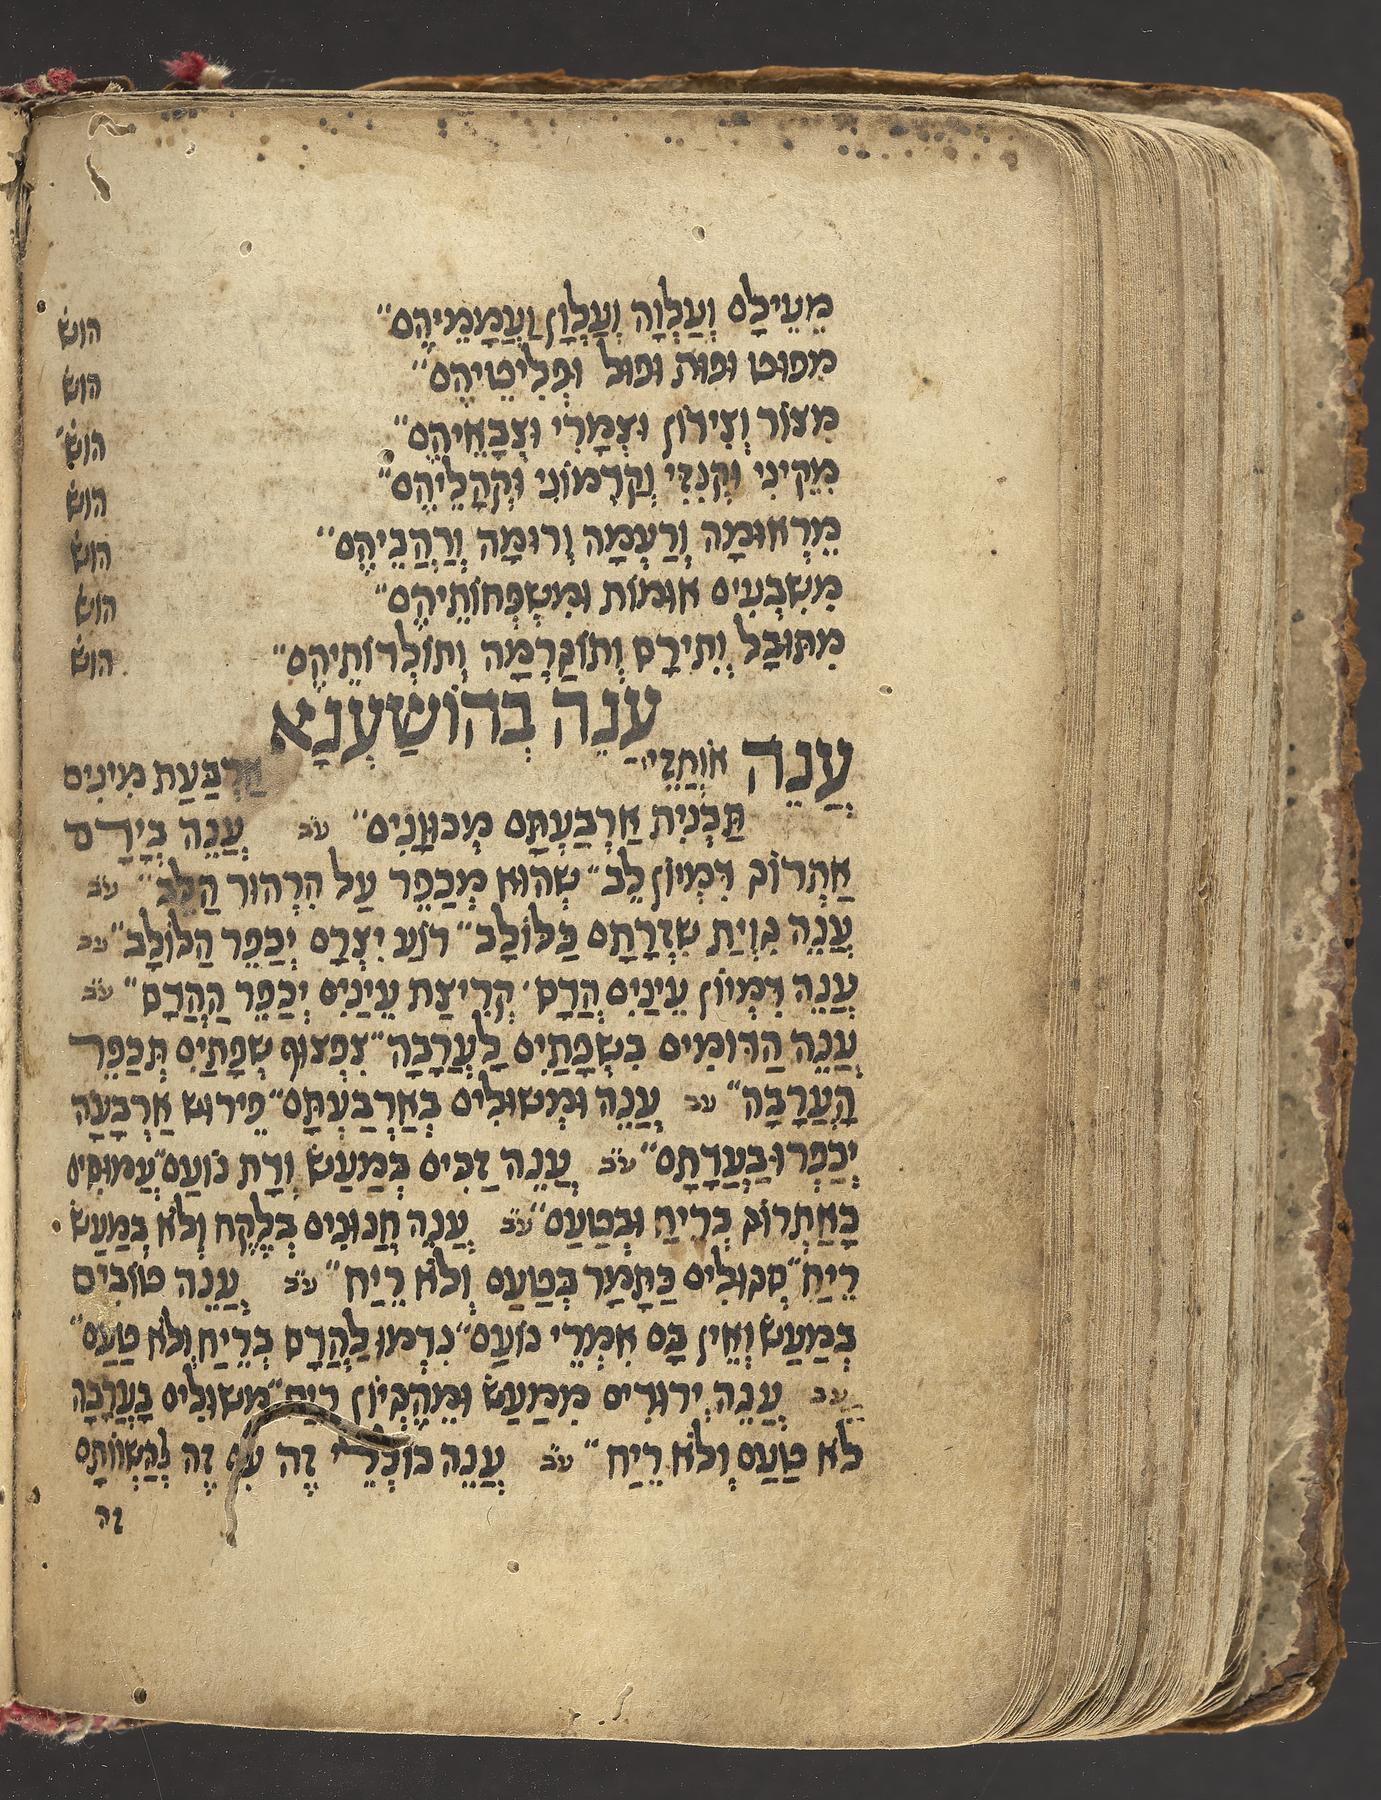 מֵעֵילָם וְעַלְוָה וְעַלְוָן וַעֲמָמֵיהֶם״ הוש׳
מִפּוּט וּפוּת וּפוּל וּפְלִיטֵיהֶם״ הוש׳
מִצּוֹר וְצִידוֹן וּצְמָרִי וּצְבָאֵיהֶם״ הוש׳
מִקֵינִי וּקְנִזִּי וְקַדְמוֹנִי וּקְהָלֵיהֶם״ הוש׳
מֵרְאוּמָה וְרַעְמָה וְרוּמָה וְרַהֲבֵיהֶם״ הוש׳
מִשִּׁבְעִים אוּמּוֹת וּמִשְׁפְּחוֹתֵיהֶם״ הוש׳
מִתּוּבַל וְתִירָס וְתוֹגַרְמָה וְתוֹלְדוֹתֵיהֶם״ הוש׳
עֲנֵה בְהוֹשַׁעְנָא
עֲנֵה אוֹחֲזֵי אַרְבַּעַת מִינִים
תַּבְנִית אַרְבַּעְתָּם מְכוּוָּנִים״ ע׳ב׳ עֲנֵה בְּיָדָם
אַתְרוֹג דִּמְיוֹן לֵב״ שֶׁהוּא מְכַפֵּר עַל הִרְהוּר הַלֵּב״ ע׳ב׳
עֲנֵה גְוִיַּת שִׁזְרָתָם כַּלּוֹלָב״ רוֹעַ יִצְרָם יְכַפֵּר הַלּוֹלָב״ ע׳ב׳
עֲנֵה דִּמְיוֹן עֵינַיִם הֲדַס׳ קְרִיצַת עֵינַיִם יְכַפֵּר הַהֲדַס״ ע׳ב׳
עֲנֵה הַדּוֹמִים בִּשְׂפָתַיִם לָעֲרָבָה״ צִפְצוּף שְׂפָתַיִם תְּכַפֵּר
הָעֲרָבָה״ ע׳ב׳ עֲנֵה וּמְשׁוּלִים בְּאַרְבַּעְתָּם״ פֵּירוּשׁ אַרְבָּעָה
יְכַפְּרוּ בַעֲדָתָם״ ע׳ב׳ עֲנֵה זַכִּים בְּמַעַשׂ וְדָת נוֹעַם״ עֲמוּסִים
כָּאַתְרוֹג בְּרֵיחַ וּבְטַעַם״ ע׳ב׳ עֲנֵה חֲנוּנִים בְּלֶקַח וְלֹא בְמַעַשׂ
רֵיחַ״ סְגוּלִים כַּתָּמָר בְּטַעַם וְלֹא רֵיחַ״ ע׳ב׳ עֲנֵה טוֹבִים
בְּמַעַשׂ וְאֵין בָּם אִמְרֵי נוֹעַם״ נִדְמוּ לַהֲדַס בְּרֵיחַ וְלֹא טַעַם״
ע׳ב׳ עֲנֵה יְרוּדִים מִמַּעַשׂ וּמֵהֶגְיוֹן רֵיחַ״ מְשׁוּלִים בָּעֲרָבָה
לֹא טַעַם וְלֹא רֵיחַ״ ע׳ב׳ עֲנֵה כְּלוּלֵי זֶה עִם זֶה לְהַשְׁווֹתָם
זה